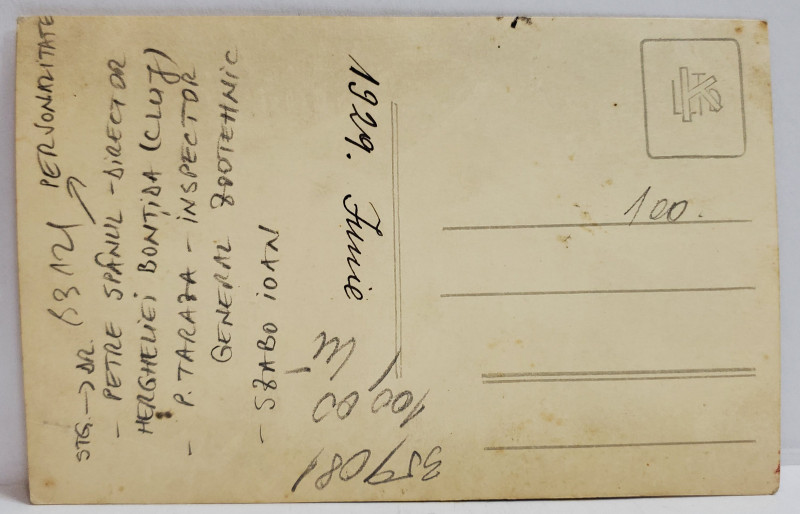 STG. → DR. 63121 ↗ PERSONALITATE
- PETRE SPÂNUL - DIRECTOR
HERGHELIEI BONȚIDA (CLUJ)
- P. TARAZA - INSPECTOR
GENERAL ZOOTEHNIC
- SZABO IOAN
1929. Junie
100.
10000 lei
359081